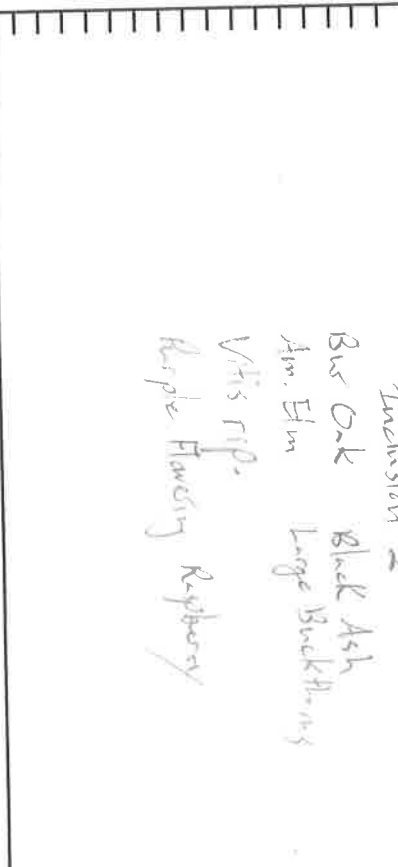 Inclusion -
Bur Oak Black Ash
Am. Elm Large Buckthorns
Vitis rip.
Purple Flowering Raspberry